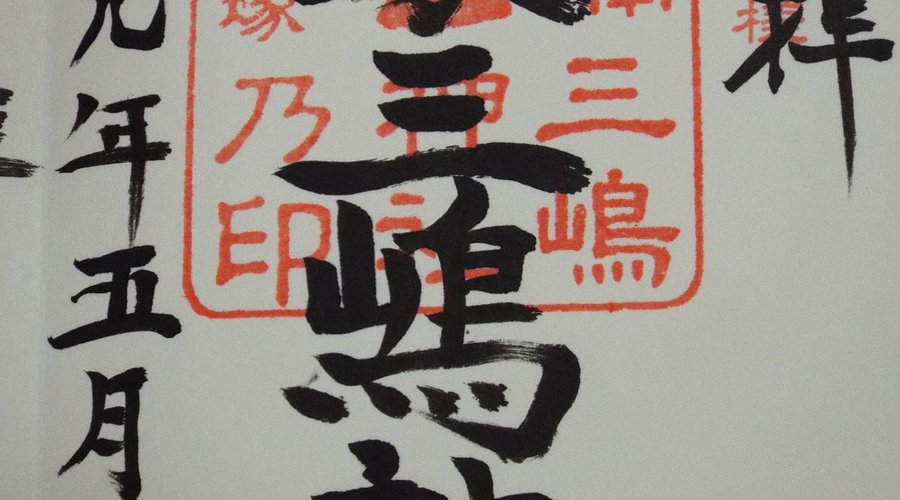 拝
三嶋
三嶋
神社
乃印
元年五月